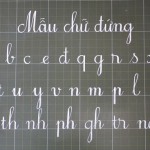 Mẫu chữ đứng
b c e d q g n s
t u y v n m p l
th nh ph gh tr n